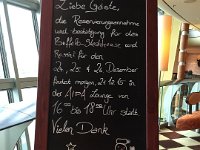 Liebe Gäste,
die Reservierungsannahme
und bestätigung für das
Buffalo Steakhouse und
für den
24., 25. & 26. Dezember
findet morgen, 21.12.15 in
der AIDA Lounge von
16:00 bis 18:00 Uhr statt
Vielen Dank